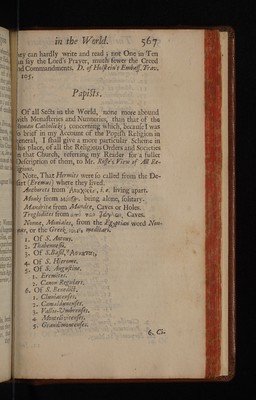 in the World. 567
hey can hardly write and read; not One in Ten
can say the Lord's Prayer, much fewer the Creed
nd Commandments. D. of Holstein's Embass. Trav.
105.
Papists.
Of all Sects in the World, none more abound
with Monasteries and Nunneries, than that of the
Roman Catholicks; concerning which, because I was
so brief in my Account of the Popish Religion in
general, I shall give a more particular Scheme in
this place, of all the Religious Orders and Societies
in that Church, referring my Reader for a fuller
Description of them, to Mr. Rosse's View of All Re-
ligions.
Note, That Hermits were so called from the De-
sart (Eremus) where they lived.
Anchorets from i. e. living apart.
Monks from being alone, solitary.
Mandritæ from Mandræ, Caves or Holes.
Trogledites from Caves.
Nonnæ, Moniales, from the Egyptian word Non-
nus, or the Greek meditari.
1. Of S. Antony.
2. Thabennesii.
3. Of S. Basil,
4. Of S. Hierome.
5. Of S. Augustine.
1. Eremites.
2. Canon Regulars.
6. Of S. Benedict,
1. Cluniacenses.
2. Camaldunenses.
3. Vallis-Umbrenses.
4. Montelivetenses.
5. Grandimontenses.
6. Ci-